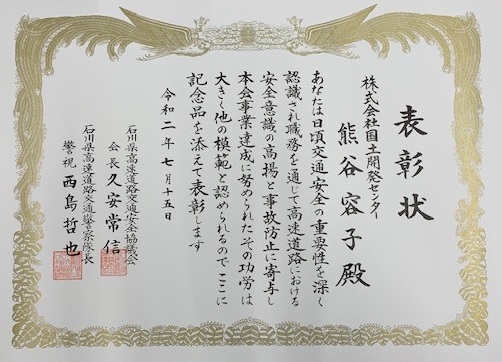 表彰状
株式会社国土開発センター
熊谷容子殿
あなたは日頃交通安全の重要性を深く
認識され職務を通じて高速道路における
安全意識の高揚と事故防止に寄与し
本会事業達成に努められたその功労は
大きく他の模範と認められるのでここに
記念品を添えて表彰します
令和二年七月十五日
石川県高速道路交通安全協議会
会長 久安常信
石川県高速道路交通警察隊長
警視 西島哲也